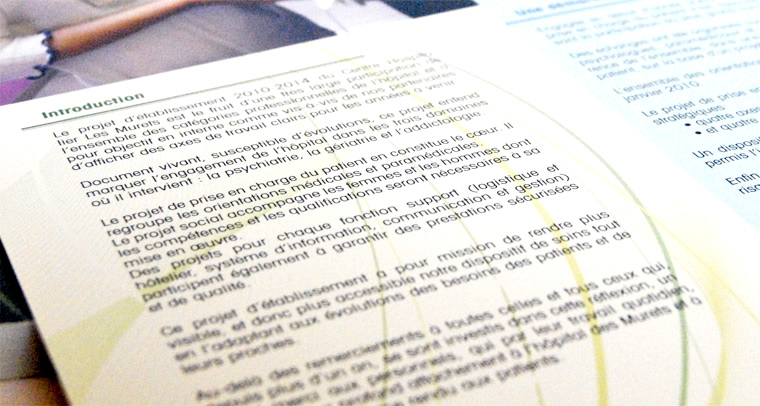 Introduction
Le projet d'établissement 2010-2014 du Centre Hospita-
lier Les Murets est le fruit d'une très large participation de
l'ensemble des catégories professionnelles de l'hôpital et a
pour objectif en interne comme vis-à-vis de nos partenaires
d'afficher des axes de travail clairs pour les années à venir.
Document vivant, susceptible d'évolutions, ce projet entend
marquer l'engagement de l'hôpital dans les trois domaines
où il intervient : la psychiatrie, la gériatrie et l'addictologie
Le projet de prise en charge du patient en constitue le cœur. Il
regroupe les orientations médicales et paramédicales.
Le projet social accompagne les femmes et les hommes dont
les compétences et les qualifications seront nécessaires à sa
mise en œuvre.
Des projets pour chaque fonction support (logistique et
hôtelier, système d'information, communication et gestion)
participent également à garantir des prestations sécurisées
et de qualité.
Ce projet d'établissement a pour mission de rendre plus
visible, et donc plus accessible notre dispositif de soins tout
en l'adaptant aux évolutions des besoins des patients et de
leurs proches.
Au-delà des remerciements à toutes celles et tous ceux qui,
depuis plus d'un an, se sont investis dans cette réflexion, un
merci aux personnels, qui par leur travail quotidien,
profond attachement à l'hôpital des Murets et à
rendu aux patients.
l'ensemble des orientations
janvier 2010
Le projet de prise en
stratégiques
• quatre axes
• et quatre
Un dispositi
permis l'
Enfin